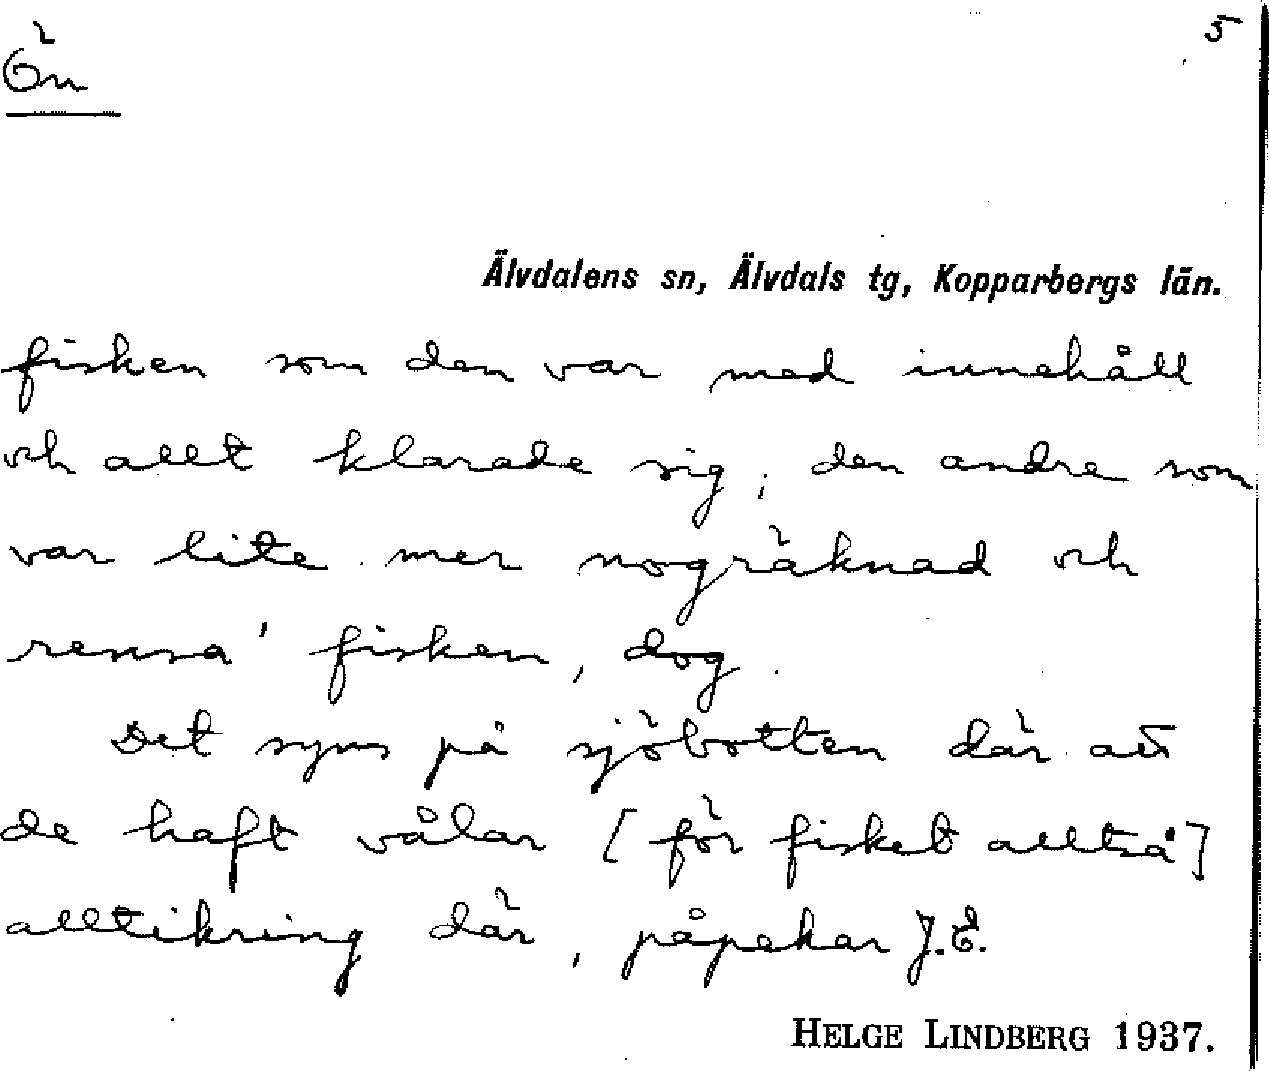 Ön
5
Älvdalens sn, Älvdals tg, Kopparbergs län.
fisken som den var med innehåll
och allt klarade sig; den andre som
var lite mer nogräknad och
rensa' fisken, dog.
Det syns på sjöbotten där att
de haft vålar [för fisket alltså]
alltikring där, påpekar J.E.
HELGE LINDBERG 1937.